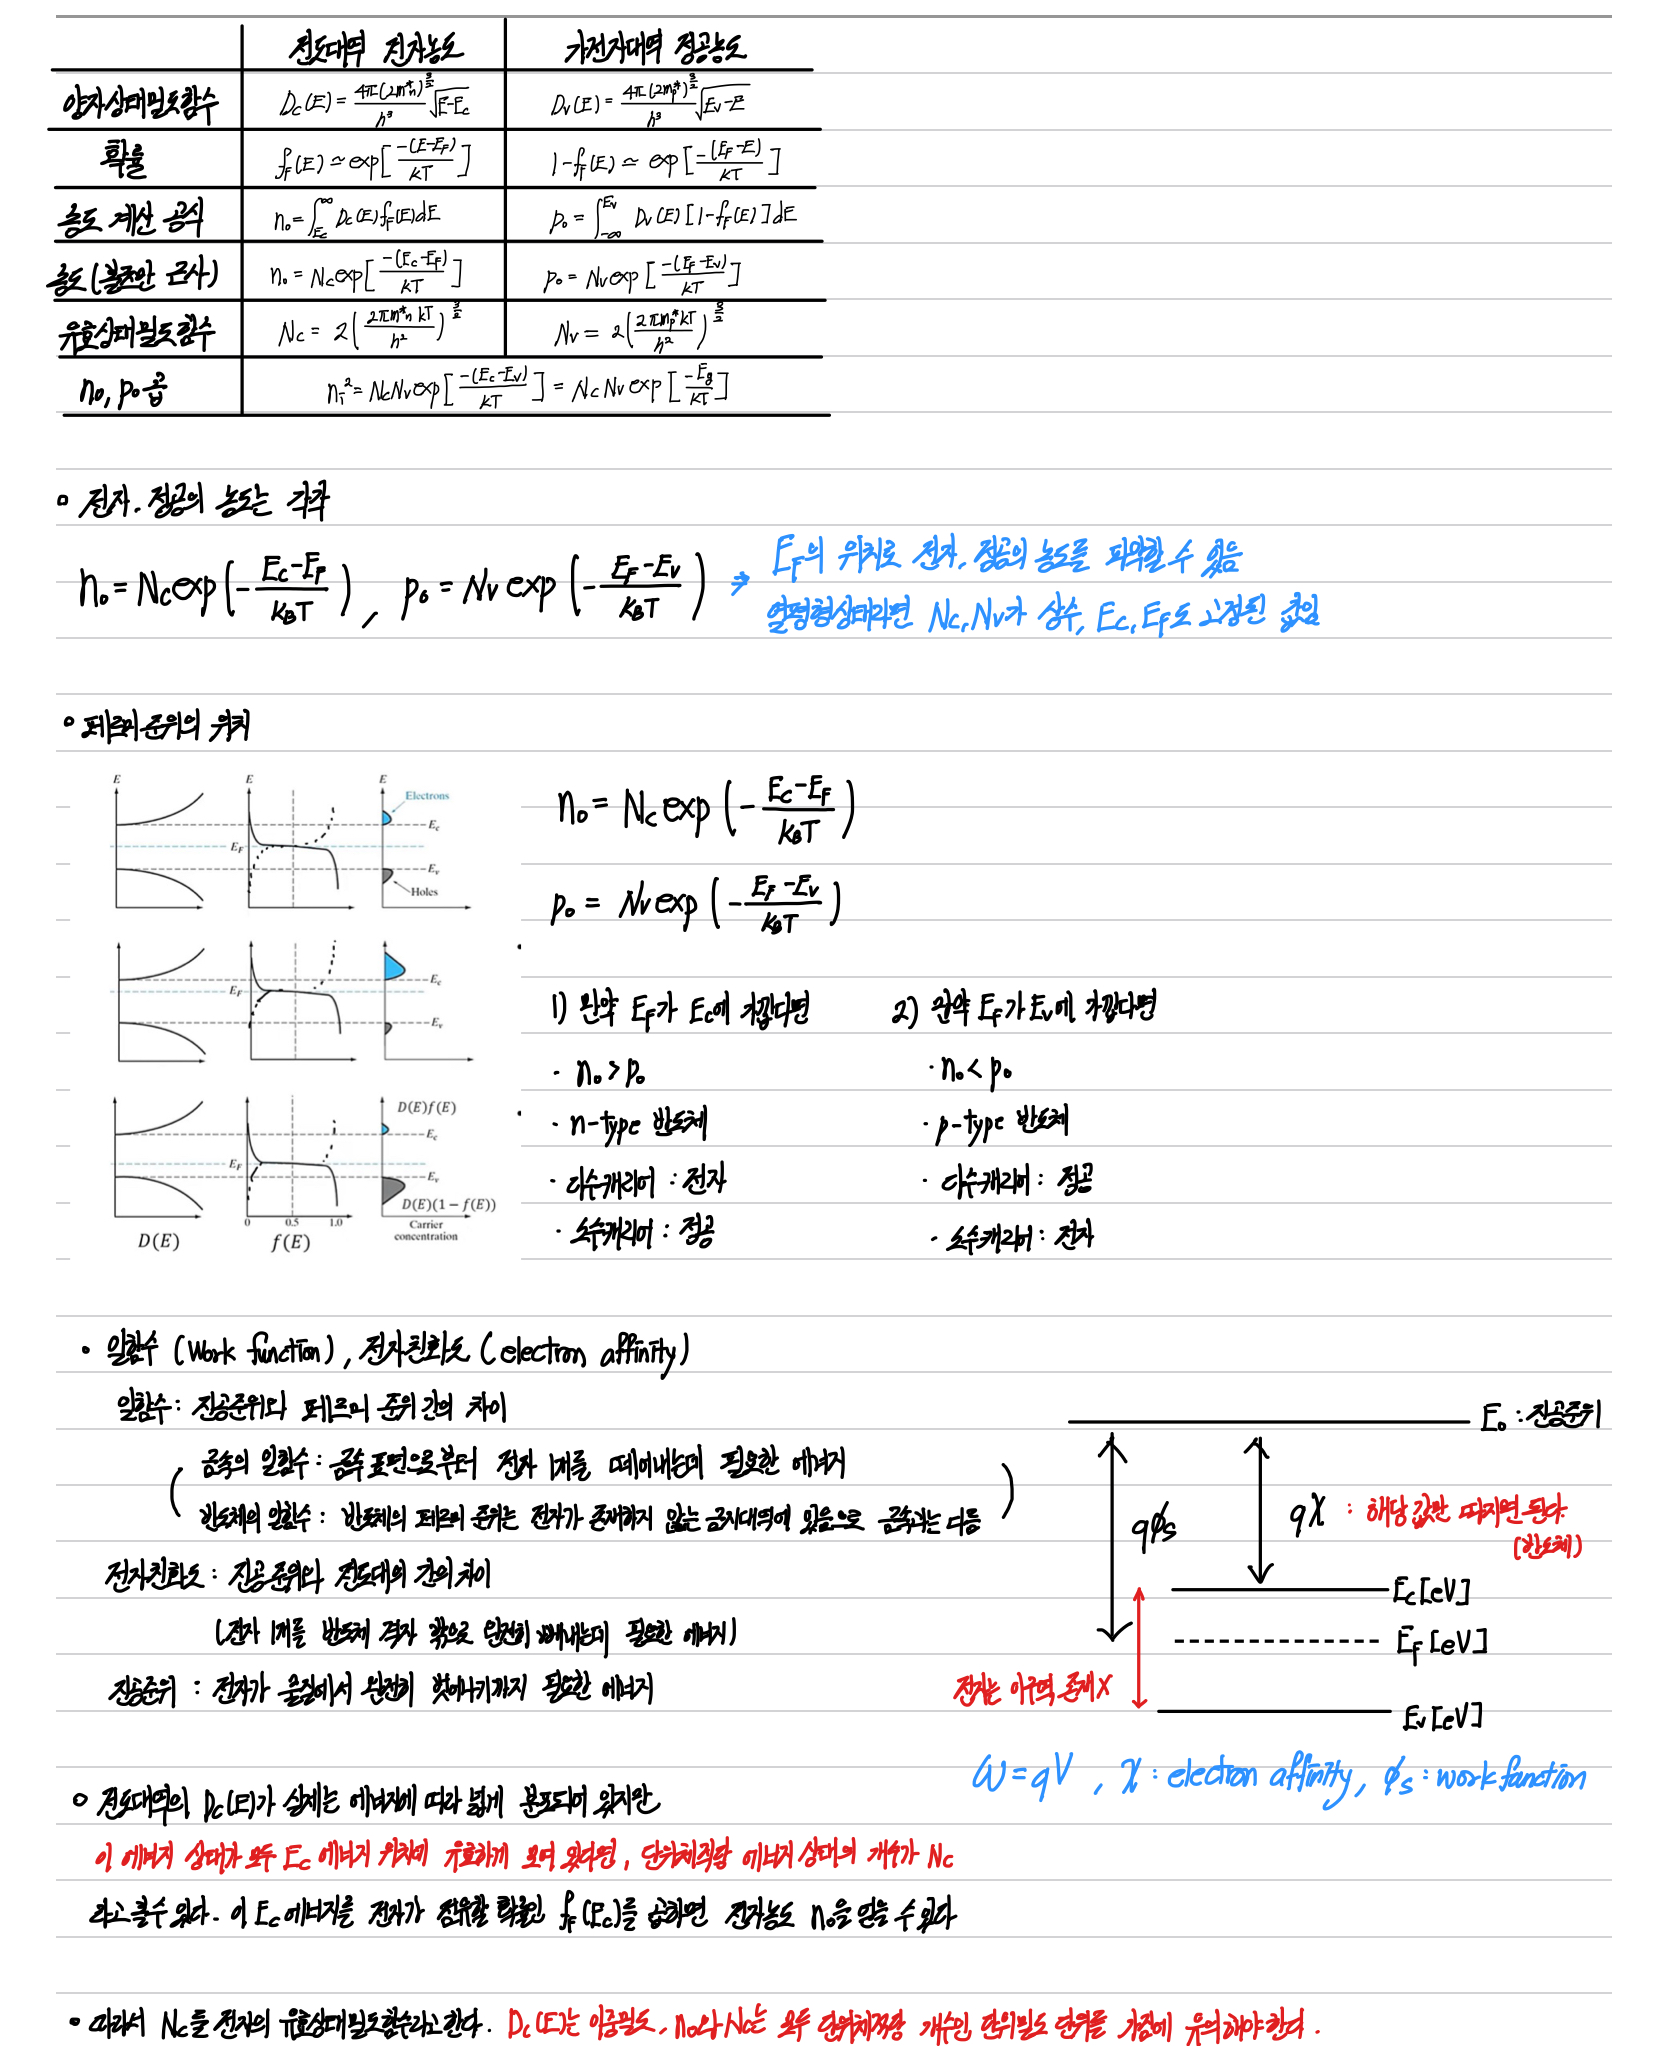 전도대역 전자농도 가전자대역 정공농도
양자상태밀도함수 D_c(E) = \frac{4π(2m_n^*)^{\frac{3}{2}}}{h^3}\sqrt{E-E_c} D_v(E) = \frac{4π(2m_p^*)^{\frac{3}{2}}}{h^3}\sqrt{E_v-E}
확률 f_F(E) ≃ exp[\frac{-(E-E_F)}{kT}] 1-f_F(E) ≃ exp[\frac{-(E_F-E)}{kT}]
농도 계산 공식 n_o = ∫_{E_c}^{∞} D_c(E)f_F(E)dE p_o = ∫_{-∞}^{E_v} D_v(E)[1-f_F(E)]dE
농도(볼츠만 근사) n_o = N_c exp[\frac{-(E_c-E_F)}{kT}] p_o = N_v exp[\frac{-(E_F-E_v)}{kT}]
유효상태밀도함수 N_c = 2(\frac{2πm_n^* kT}{h^2})^{\frac{3}{2}} N_v = 2(\frac{2πm_p^* kT}{h^2})^{\frac{3}{2}}
n_o, p_o 곱 n_i^2 = N_cN_v exp[\frac{-(E_c-E_v)}{kT}] = N_cN_v exp[\frac{-E_g}{kT}]
전자, 정공의 농도는 각각
n_o = N_c exp(-\frac{E_c-E_F}{k_BT}), p_o = N_v exp(-\frac{E_F-E_v}{k_BT}) ⇒ E_F의 위치로 전자, 정공의 농도를 파악할 수 있음
열평형상태라면 N_c, N_v가 상수, E_c, E_F도 고정된 값임
페르미준위의 위치
E E E
Electrons
E_c
E_F
E_v
Holes
E_c
E_F
E_v
D(E)f(E)
E_c
E_F
E_v
D(E)(1 − f(E))
0 0.5 1.0 Carrier
concentration
D(E) f(E)
n_o = N_c exp(-\frac{E_c-E_F}{k_BT})
p_o = N_v exp(-\frac{E_F-E_v}{k_BT})
1) 만약 E_F가 E_c에 가깝다면
· n_o > p_o
· n-type 반도체
· 다수캐리어 : 전자
· 소수캐리어 : 정공
2) 만약 E_F가 E_v에 가깝다면
· n_o < p_o
· p-type 반도체
· 다수캐리어 : 정공
· 소수캐리어 : 전자
• 일함수 (Work function), 전자친화도 (electron affinity)
일함수 : 진공준위와 페르미 준위 간의 차이
금속의 일함수 : 금속 표면으로부터 전자 1개를 떼어내는데 필요한 에너지
반도체의 일함수 : 반도체의 페르미 준위는 전자가 존재하지 않는 금지대역에 있음으로 금속과는 다름
전자친화도 : 진공준위와 전도대의 간의 차이
(전자 1개를 반도체 격자 밖으로 완전히 떼어내는데 필요한 에너지)
진공준위 : 전자가 물질에서 완전히 벗어나기까지 필요한 에너지
E_o : 진공준위
qφ_s
qχ : 해당 값만 따지면 된다
(반도체)
E_c [eV]
E_F [eV]
전자는 이구역 존재 X
E_v [eV]
ω = qV , χ : electron affinity, φ_s : work function
전도대역의 D_c(E)가 실제는 에너지에 따라 넓게 분포되어 있지만
이 에너지 상태가 모두 E_c 에너지 위치에 유효하게 모여 있다면, 단위체적당 에너지 상태의 개수가 N_c
라고 볼수 있다. 이 E_c 에너지를 전자가 점유할 확률인 f_F(E_c)를 곱하면 전자농도 n_o을 얻을 수 있다
• 따라서 N_c를 전자의 유효상태밀도함수라고 한다. D_c(E)는 이중밀도, n_o와 N_c는 모두 단위체적당 개수인 단위밀도 단위를 가짐에 유의해야한다.